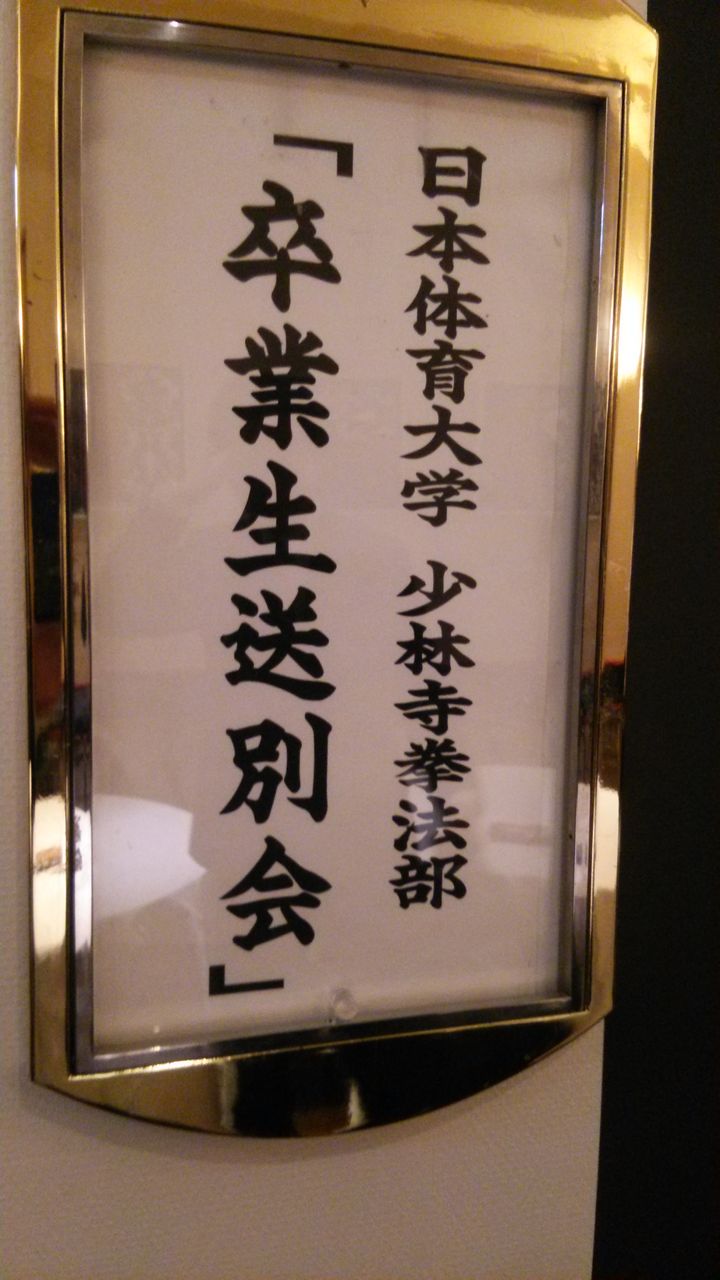 日本体育大学 少林寺拳法部
「卒業生送別会」